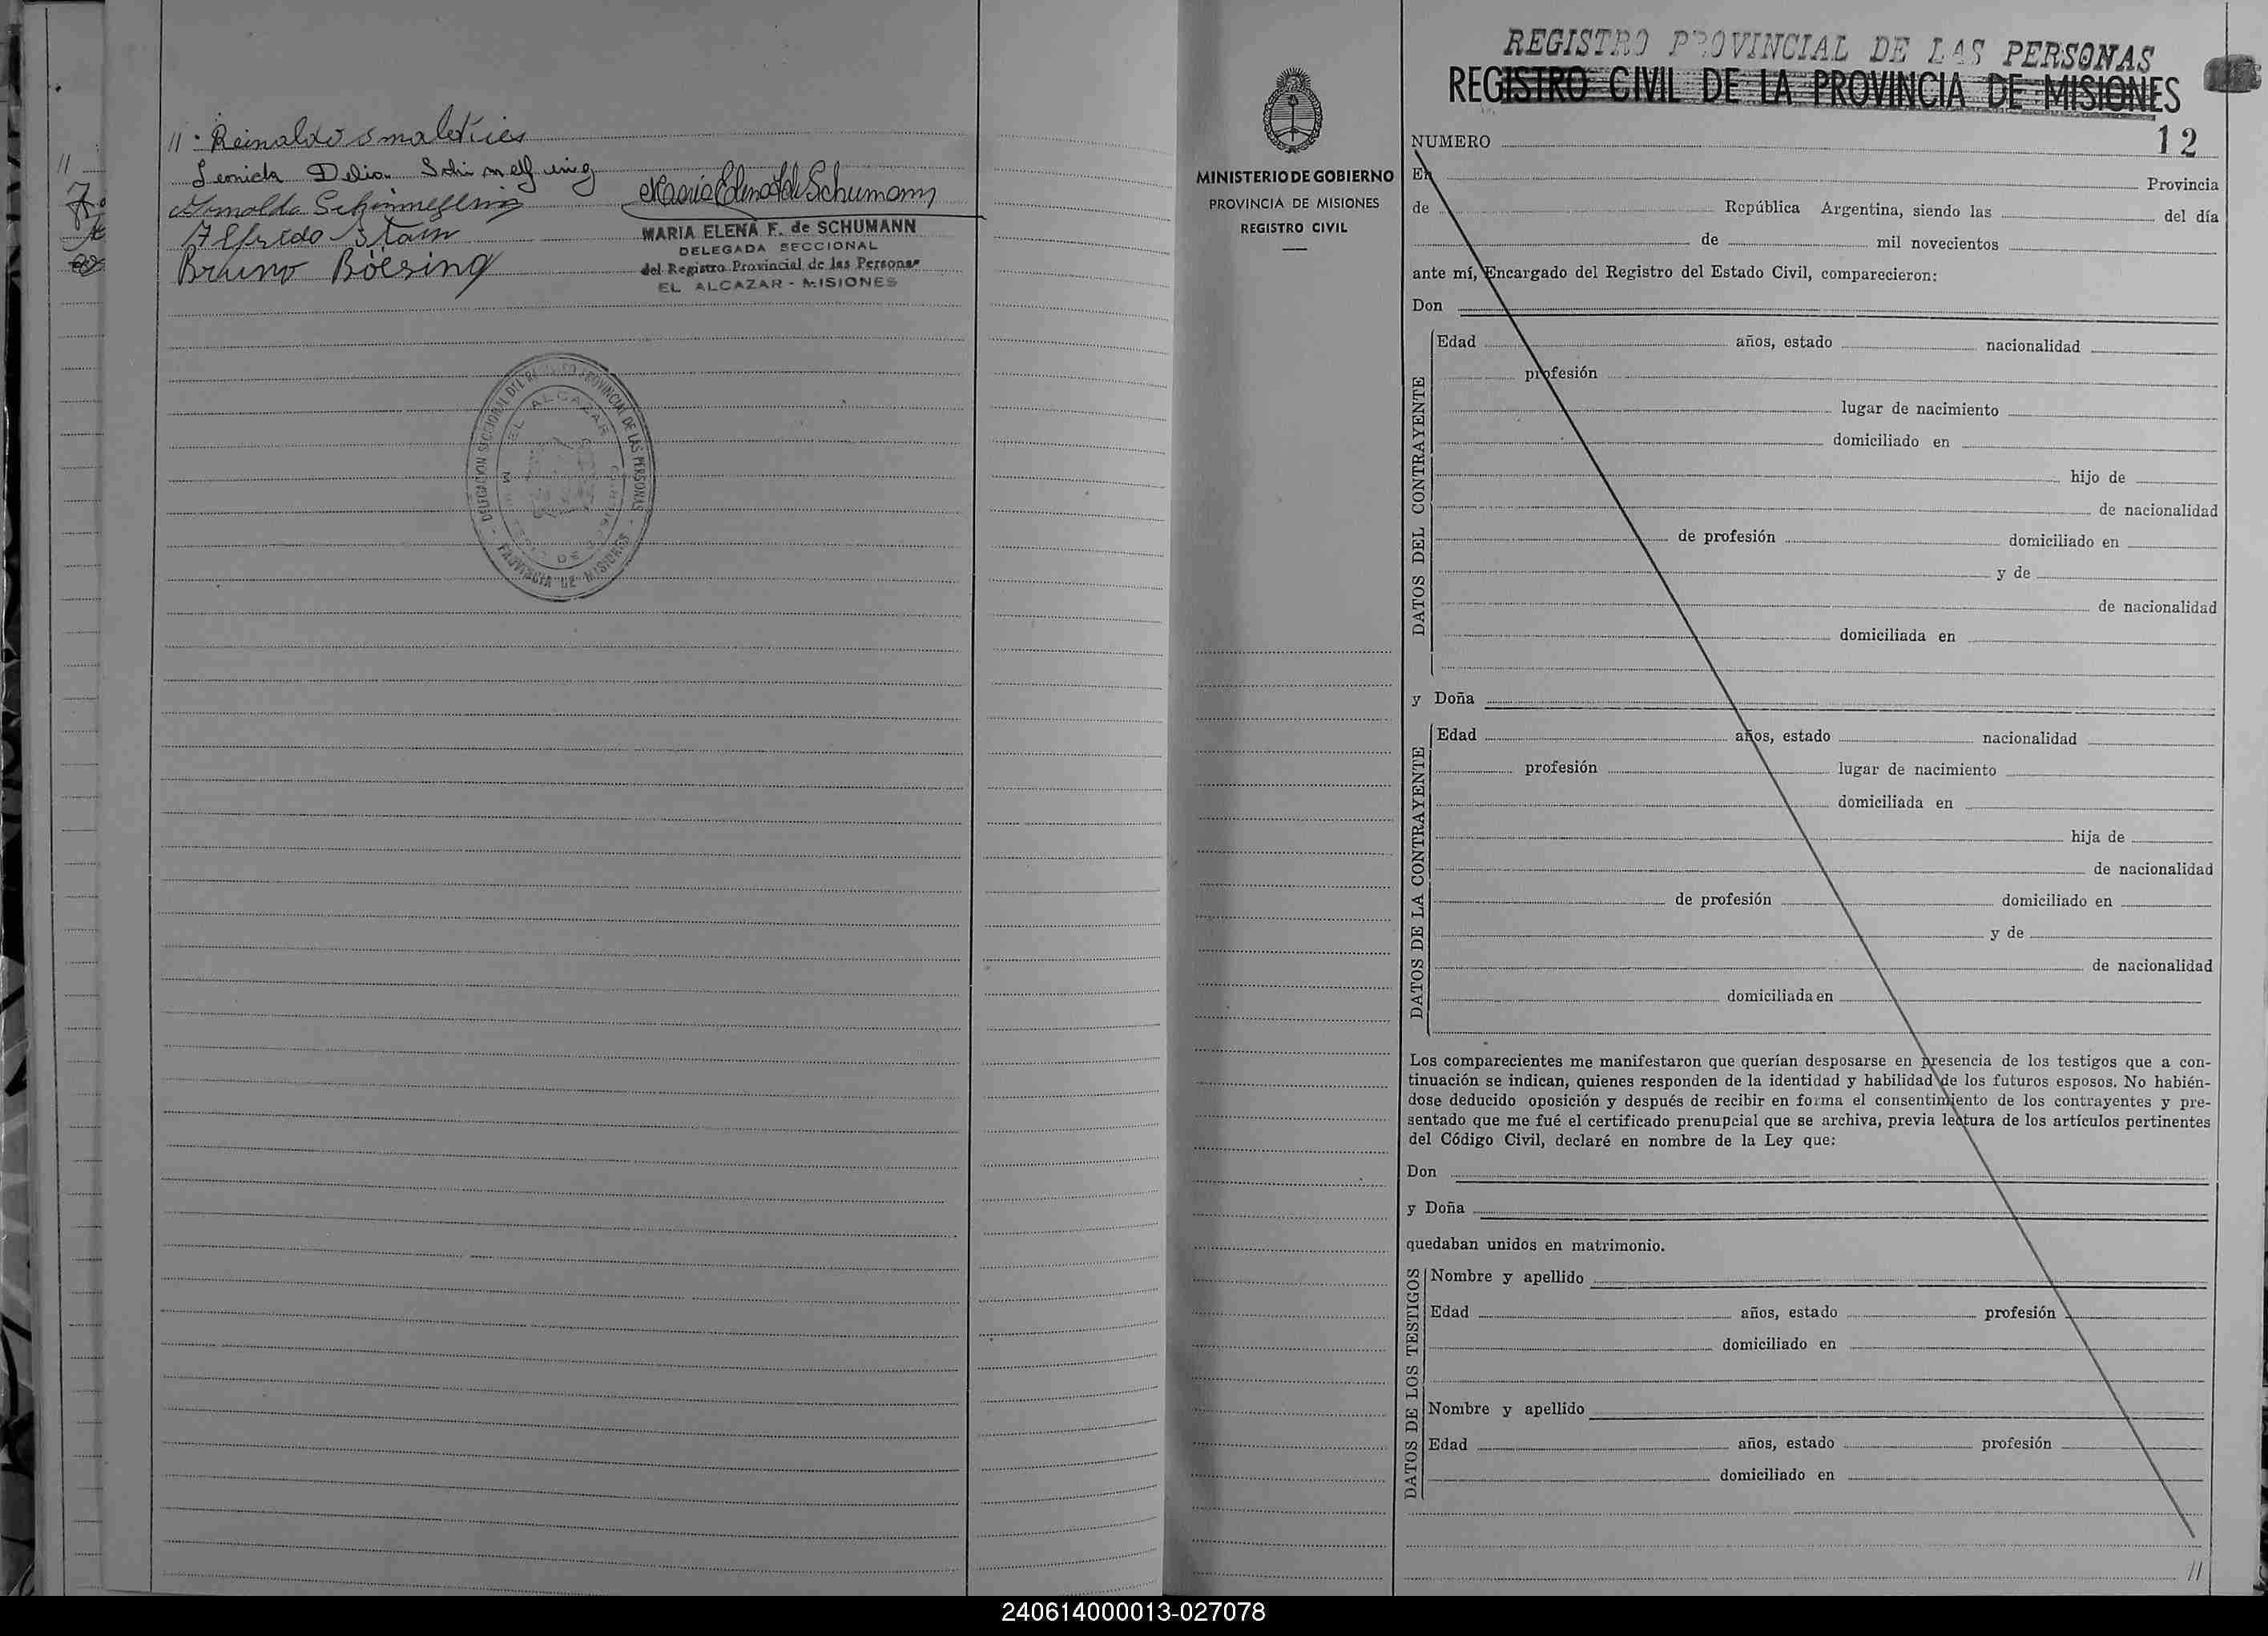 // - Reinaldo Smaletries
Lenida Delia Schimelfenig
Arnoldo Schimmelfenig
María Elena F. de Schumann
Alfredo Stam
Bruno Bölsing
MARIA ELENA F. de SCHUMANN
DELEGADA SECCIONAL
del Registro Provincial de las Personas
EL ALCAZAR - MISIONES
DELEGACION SECCIONAL DEL REGISTRO PROVINCIAL DE LAS PERSONAS
EL ALCAZAR
PROVINCIA DE MISIONES
MINISTERIO DE GOBIERNO
PROVINCIA DE MISIONES
REGISTRO CIVIL
REGISTRO PROVINCIAL DE LAS PERSONAS
REGISTRO CIVIL DE LA PROVINCIA DE MISIONES
12
NUMERO
En Provincia
de República Argentina, siendo las del día
de mil novecientos
ante mí, Encargado del Registro del Estado Civil, comparecieron:
Don
DATOS DEL CONTRAYENTE
Edad años, estado nacionalidad
profesión
lugar de nacimiento
domiciliado en
hijo de
de nacionalidad
de profesión domiciliado en
y de
de nacionalidad
domiciliada en
y Doña
DATOS DE LA CONTRAYENTE
Edad años, estado nacionalidad
profesión lugar de nacimiento
domiciliada en
hija de
de nacionalidad
de profesión domiciliado en
y de
de nacionalidad
domiciliada en
Los comparecientes me manifestaron que querían desposarse en presencia de los testigos que a con-
tinuación se indican, quienes responden de la identidad y habilidad de los futuros esposos. No habién-
dose deducido oposición y después de recibir en forma el consentimiento de los contrayentes y pre-
sentado que me fué el certificado prenupcial que se archiva, previa lectura de los artículos pertinentes
del Código Civil, declaré en nombre de la Ley que:
Don
y Doña
quedaban unidos en matrimonio.
DATOS DE LOS TESTIGOS
Nombre y apellido
Edad años, estado profesión
domiciliado en
Nombre y apellido
Edad años, estado profesión
domiciliado en
//
240614000013-027078